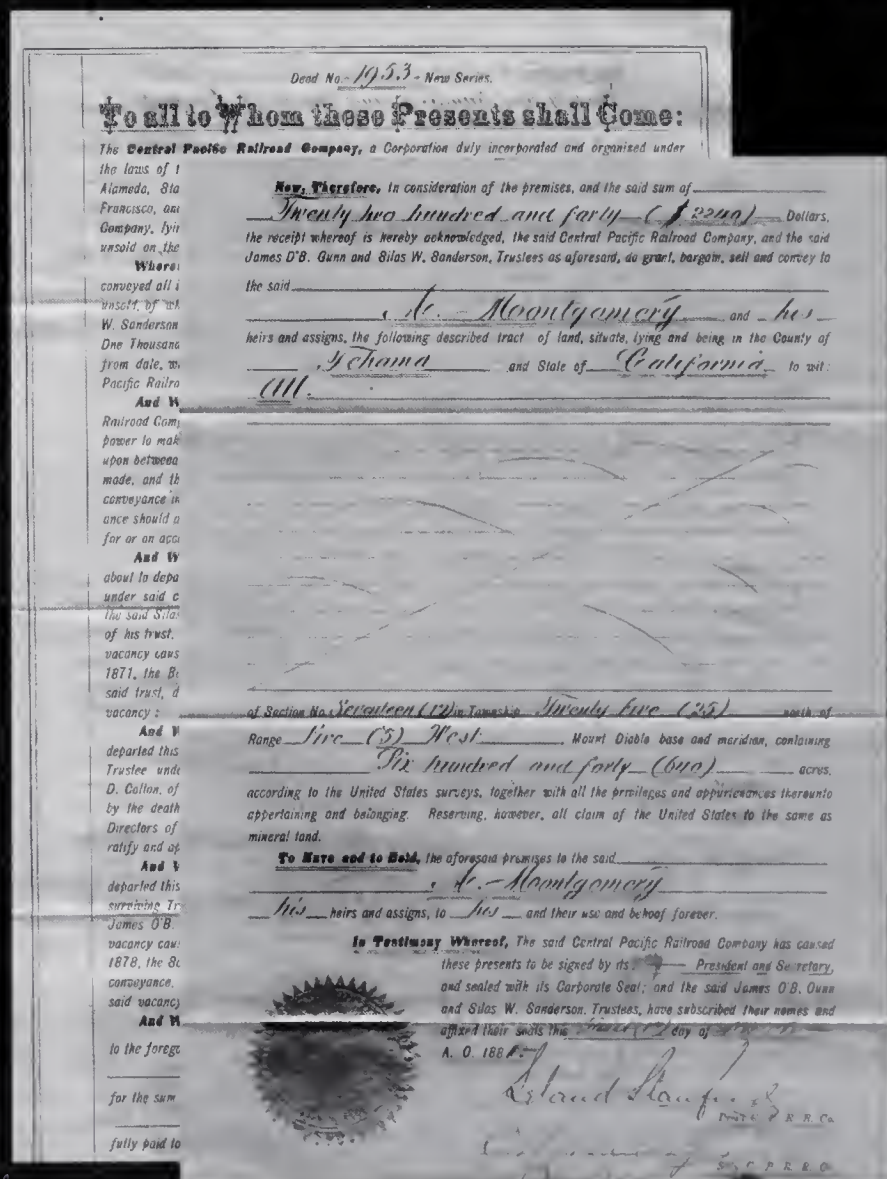 Deed No. 1953 - New Series.
To all to Whom these Presents shall Come:
The Central Pacific Railroad Company, a Corporation duly incorporated and organised under
the laws of
Alameda, Sta
Francisco, and
Company, lyin
unsold on the
Wherea
conveyed all i
unsold, of wh
W. Sanderson
One Thousand
from date, w
Pacific Railro
And W
Railroad Com
power to mak
upon between
made, and th
conveyance in
ance should a
for or on acc
And W
about to depa
under said c
the said Silas
of his trust,
vacancy caus
1871, the Bo
said trust, d
vacancy :
And W
departed this
Trustee unde
D. Colton, of
by the death
Directors of
ratify and ap
And W
departed this
surviving Tr
James O'B.
vacancy caus
1878, the Bo
conveyance,
said vacancy
And W
to the forego
for the sum
fully paid to
Now, Therefore, in consideration of the premises, and the said sum of
Twenty two hundred and forty ($ 2240) Dollars,
the receipt whereof is hereby acknowledged, the said Central Pacific Railroad Company, and the said
James O'B. Gunn and Silas W. Sanderson, Trustees as aforesaid, do grant, bargain, sell and convey to
the said
A. Moontgomery and his
heirs and assigns, the following described tract of land, situate, lying and being in the County of
Tehama and State of California to wit:
All.
of Section No. Seventeen (17) in Township Twenty five (25) north of
Range Five (5) West Mount Diablo base and meridian, containing
Six hundred and forty (640) acres,
according to the United States surveys, together with all the privileges and appurtenances thereunto
appertaining and belonging. Reserving, however, all claim of the United States to the same as
mineral land.
To Have and to Hold, the aforesaid premises to the said
A. Moontgomery
his heirs and assigns, to his and their use and behoof forever.
In Testimony Whereof, The said Central Pacific Railroad Company has caused
these presents to be signed by its President and Secretary,
and sealed with its Corporate Seal; and the said James O'B. Gunn
and Silas W. Sanderson, Trustees, have subscribed their names and
affixed their seals this day of
A. D. 188
Leland Stanford
Prest C. P. R. R. Co.
Sec'y C. P. R. R. Co